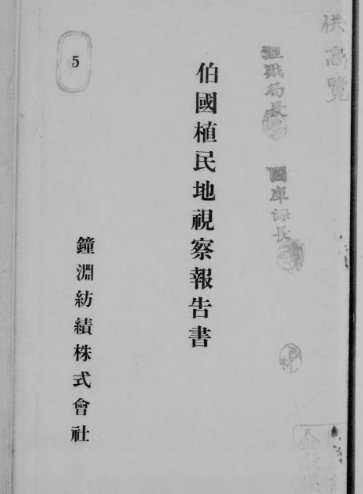 供高覽
理財局長
國庫課長
伯國植民地視察報告書
5
鐘淵紡績株式會社